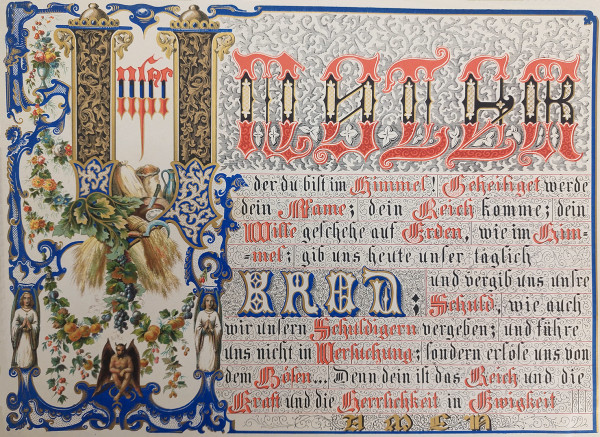 Unser
VATER
der du bist im Himmel! Geheiliget werde
dein Name; dein Reich komme; dein
Wille geschehe auf Erden, wie im Him-
-mel; gib uns heute unser täglich
BROD; und vergib uns unsre
Schuld, wie auch
wir unsern Schuldigern vergeben; und führe
uns nicht in Versuchung; sondern erlöse uns von
dem Bösen... Denn dein ist das Reich und die
Kraft und die Herrlichkeit in Ewigkeit!!!
AMEN